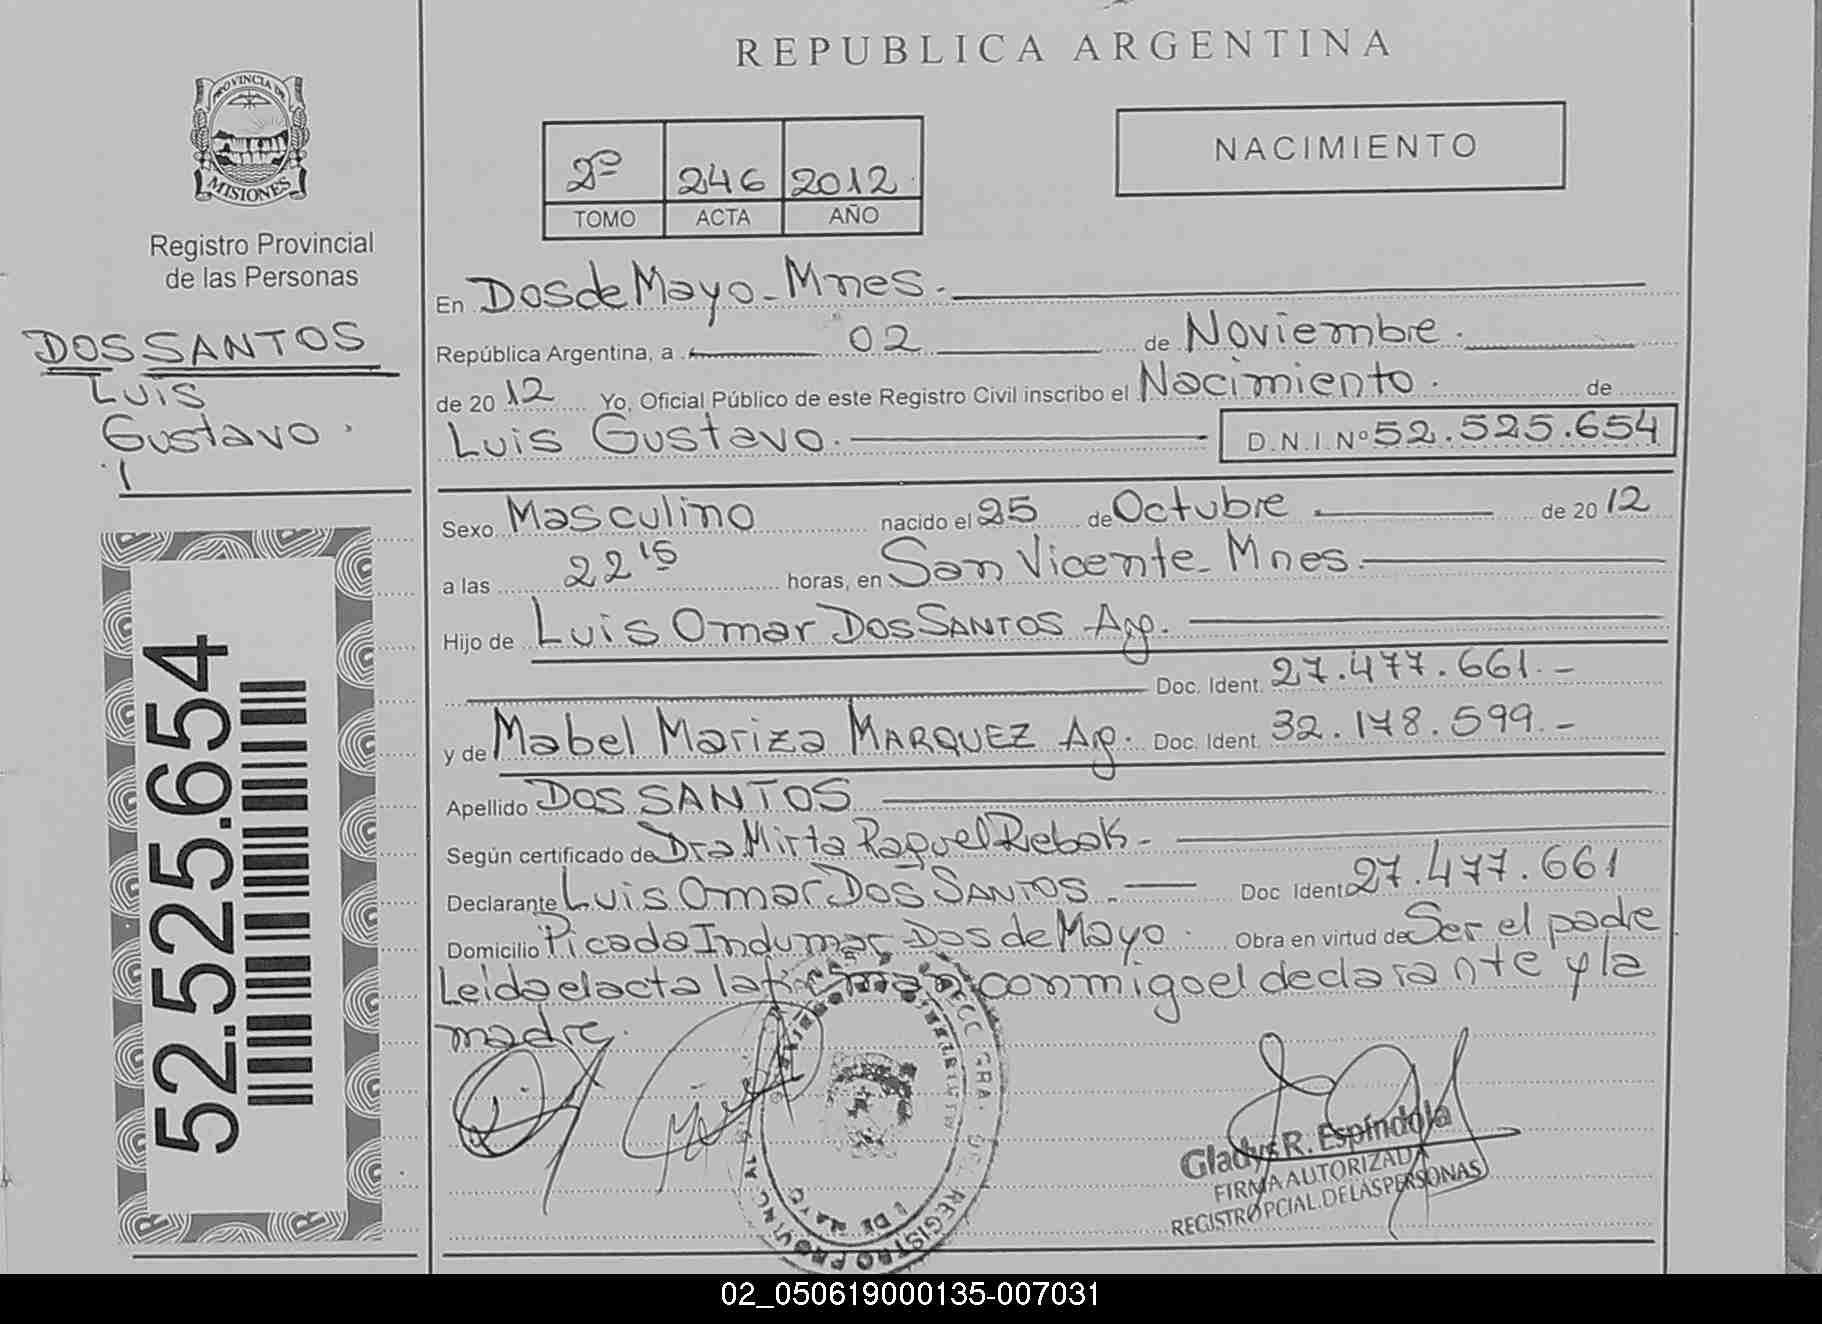 REPUBLICA ARGENTINA
PROVINCIA DE
MISIONES
Registro Provincial
de las Personas
DOS SANTOS
Luis
Gustavo.
52.525.654
2º 246 2012
TOMO ACTA AÑO
NACIMIENTO
En Dos de Mayo - Mnes.
República Argentina, a 02 de Noviembre.
de 2012 Yo, Oficial Público de este Registro Civil inscribo el Nacimiento. de
Luis Gustavo. D.N.I. Nº 52.525.654
Sexo Masculino nacido el 25 de Octubre de 2012
a las 22 15 horas, en San Vicente - Mnes.
Hijo de Luis Omar DOS SANTOS Arg.
Doc. Ident. 27.477.661.-
y de Mabel Mariza MARQUEZ Arg. Doc. Ident. 32.178.599.-
Apellido DOS SANTOS
Según certificado de Dra Mirta Raquel Rebak-
Declarante Luis Omar Dos SANTOS.- Doc Ident 27.477.661
Domicilio Picada Indumar - Dos de Mayo. Obra en virtud de Ser el padre
Leida el acta la firman conmigo el declarante y la
madre.
Gladys R. Espíndola
FIRMA AUTORIZADA
REGISTRO PCIAL. DE LAS PERSONAS
02_050619000135-007031